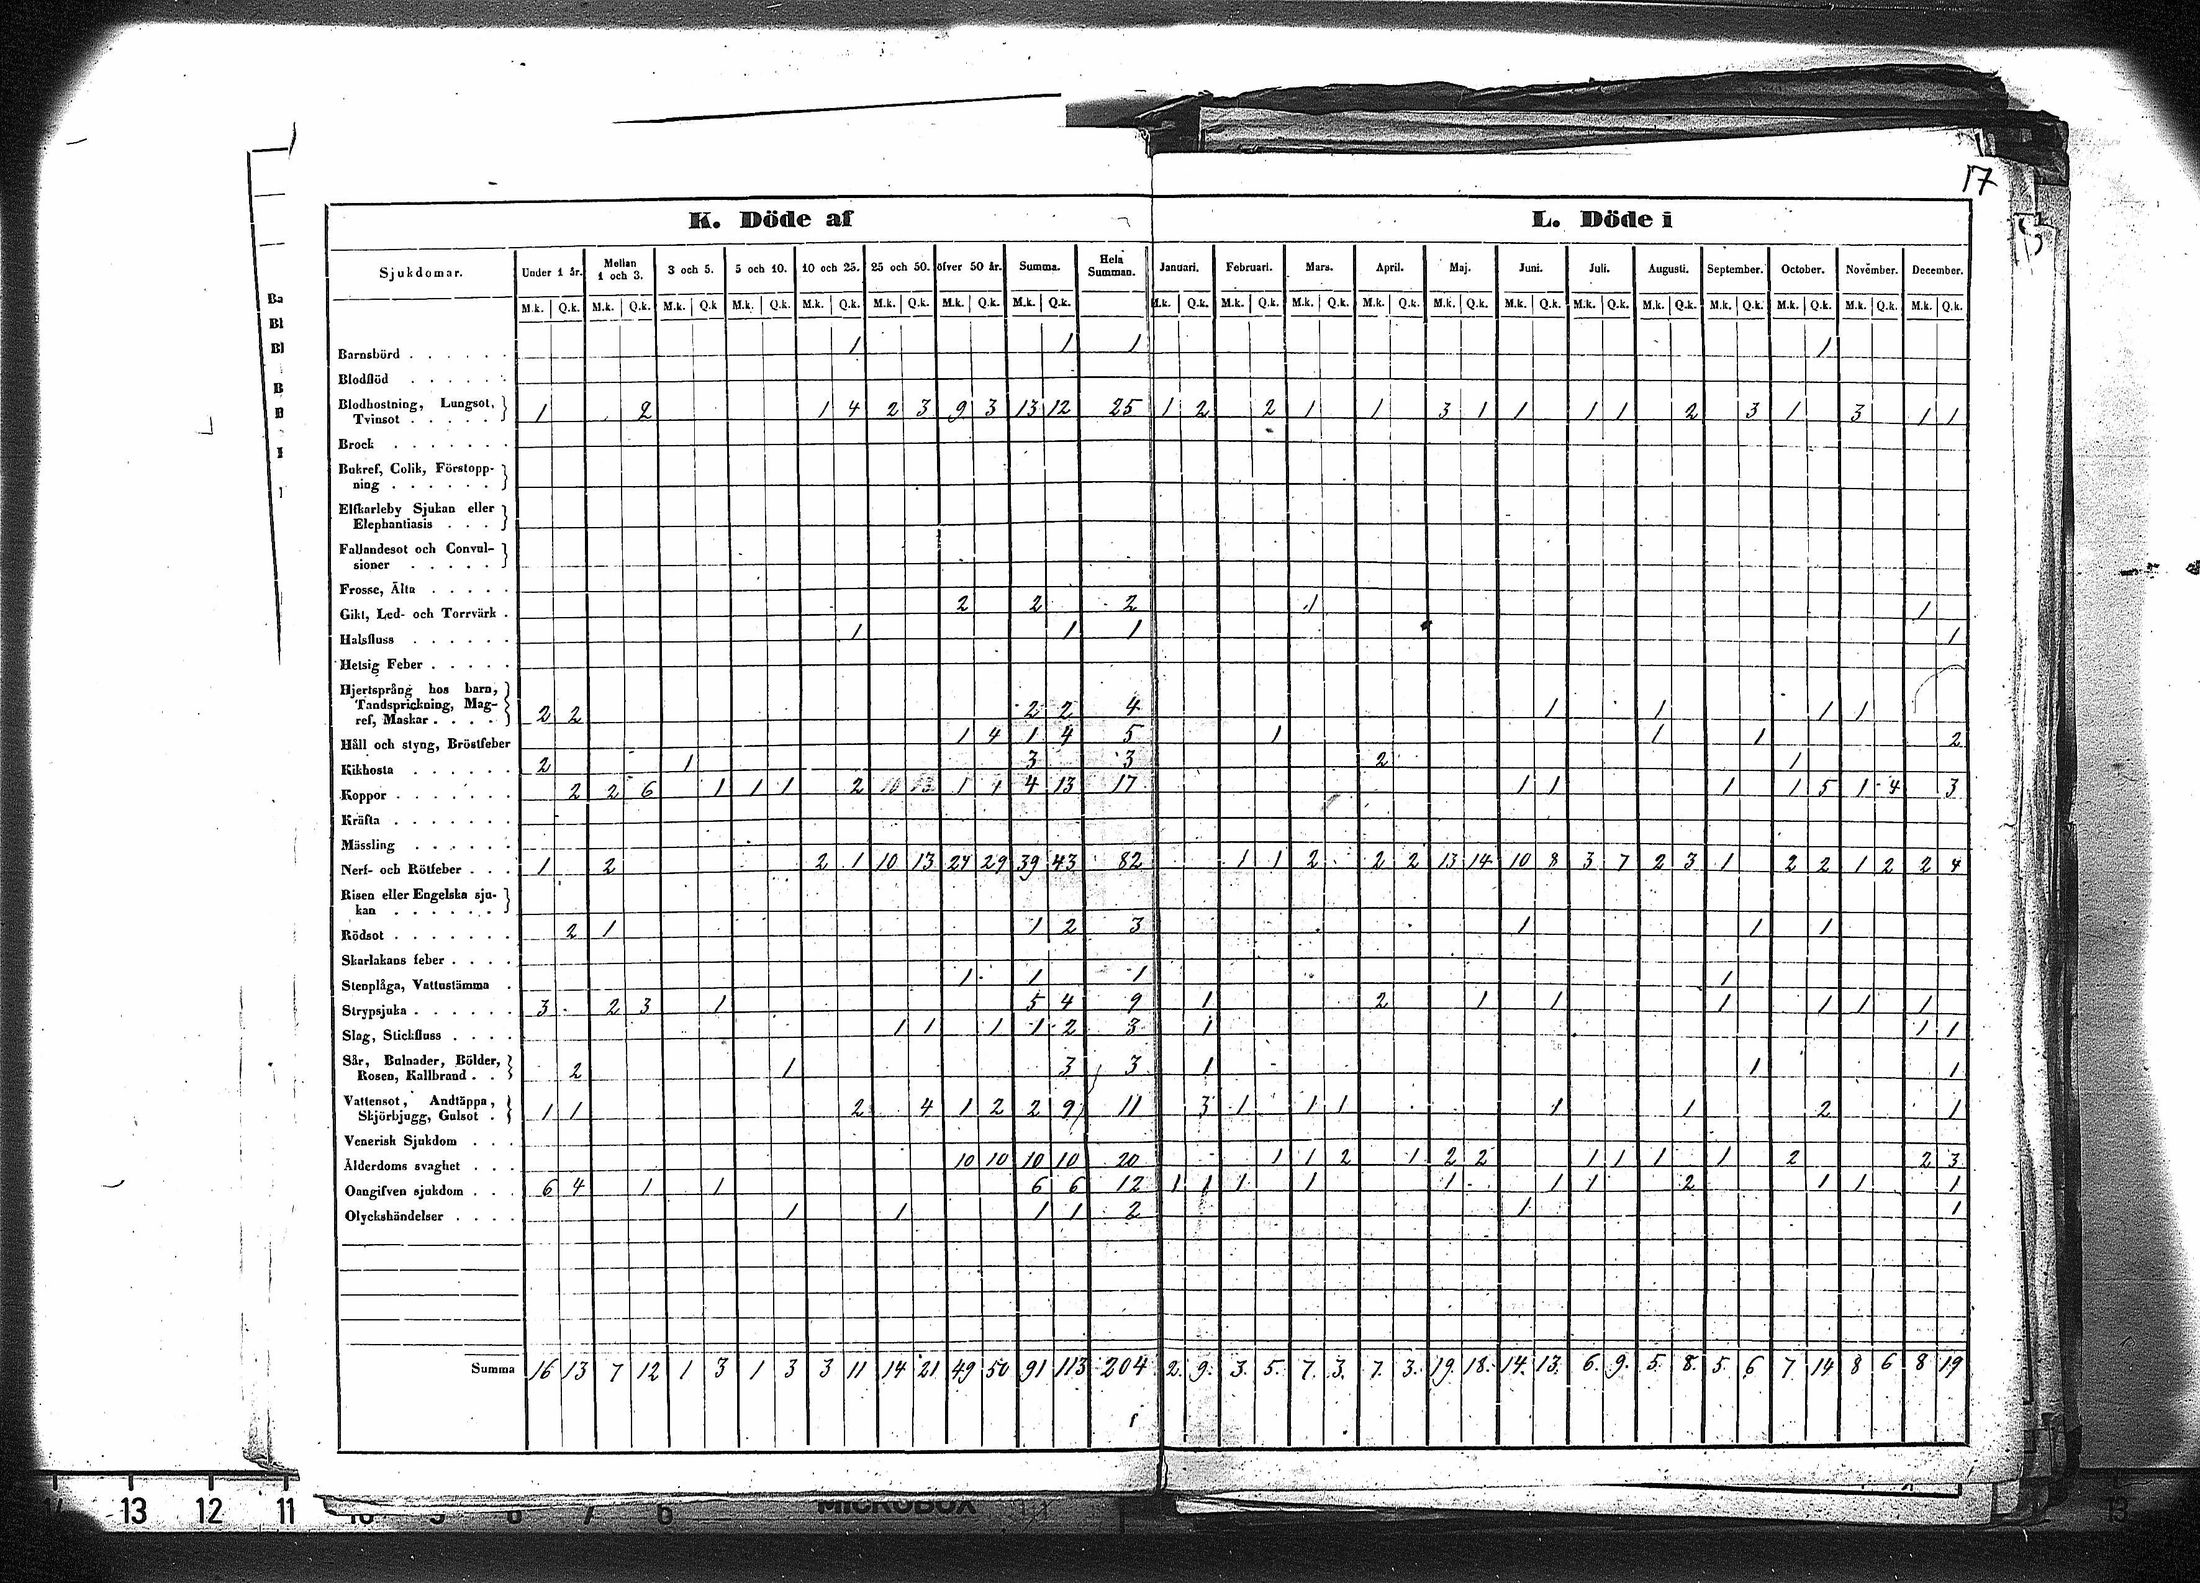 17
K. Döde af
L. Döde i
Sjukdomar. Under 1 år. Mellan 1 och 3. 3 och 5. 5 och 10. 10 och 25. 25 och 50. öfver 50 år. Summa. Hela Summan. Januari. Februari. Mars. April. Maj. Juni. Juli. Augusti. September. October. November. December.
M.k. Q.k. M.k. Q.k. M.k. Q.k M.k. Q.k. M.k. Q.k. M.k. Q.k. M.k. Q.k. M.k. Q.k. M.k. Q.k. M.k. Q.k. M.k. Q.k. M.k. Q.k. M.k. Q.k. M.k. Q.k. M.k. Q.k. M.k. Q.k. M.k. Q.k. M.k. Q.k. M.k. Q.k. M.k. Q.k.
Barnsbörd 1 1 1 1
Blodflöd
Blodhostning, Lungsot,
Tvinsot 1 2 1 4 2 3 9 3 13 12 25 1 2 2 1 1 3 1 1 1 1 2 3 1 3 1 1
Brock
Bukref, Colik, Förstopp-
ning
Elfkarleby Sjukan eller
Elephantiasis
Fallandesot och Convul-
sioner
Frosse, Älta
Gikt, Led- och Torrvärk 2 2 2 1 1
Halsfluss 1 1 1 1
Hetsig Feber
Hjertsprång hos barn,
Tandsprickning, Mag-
ref, Maskar 2 2 2 2 4 1 1 1 1
Håll och styng, Bröstfeber 1 4 1 4 5 1 1 1 2
Kikhosta 2 1 3 3 2 1
Koppor 2 2 6 1 1 1 2 1 1 4 13 17 1 1 1 1 5 1 4 3
Kräfta
Mässling
Nerf- och Rötfeber 1 2 2 1 10 13 24 29 39 43 82 1 1 2 2 2 13 14 10 8 3 7 2 3 1 2 2 1 2 2 4
Risen eller Engelska sju-
kan
Rödsot 2 1 1 2 3 1 1 1
Skarlakans feber
Stenplåga, Vattustämma 1 1 1 1
Strypsjuka 3 2 3 1 5 4 9 1 2 1 1 1 1 1 1
Slag, Stickfluss 1 1 1 1 2 3 1 1 1
Sår, Bulnader, Bölder,
Rosen, Kallbrand 2 1 3 3 1 1 1
Vattensot, Andtäppa,
Skjörbjugg, Gulsot 1 1 2 4 1 2 2 9 11 3 1 1 1 1 1 2 1
Venerisk Sjukdom
Ålderdoms svaghet 10 10 10 10 20 1 1 2 1 2 2 1 1 1 1 2 2 3
Oangifven sjukdom 6 4 1 1 6 6 12 1 1 1 1 1 1 1 2 1 1 1
Olyckshändelser 1 1 1 1 2 1 1
Summa 16 13 7 12 1 3 1 3 3 11 14 21 49 50 91 113 204 2. 9. 3. 5. 7. 3. 7. 3. 19. 18. 14. 13. 6. 9. 5. 8. 5. 6 7 14 8 6 8 19
13 12 11
MICROBOX